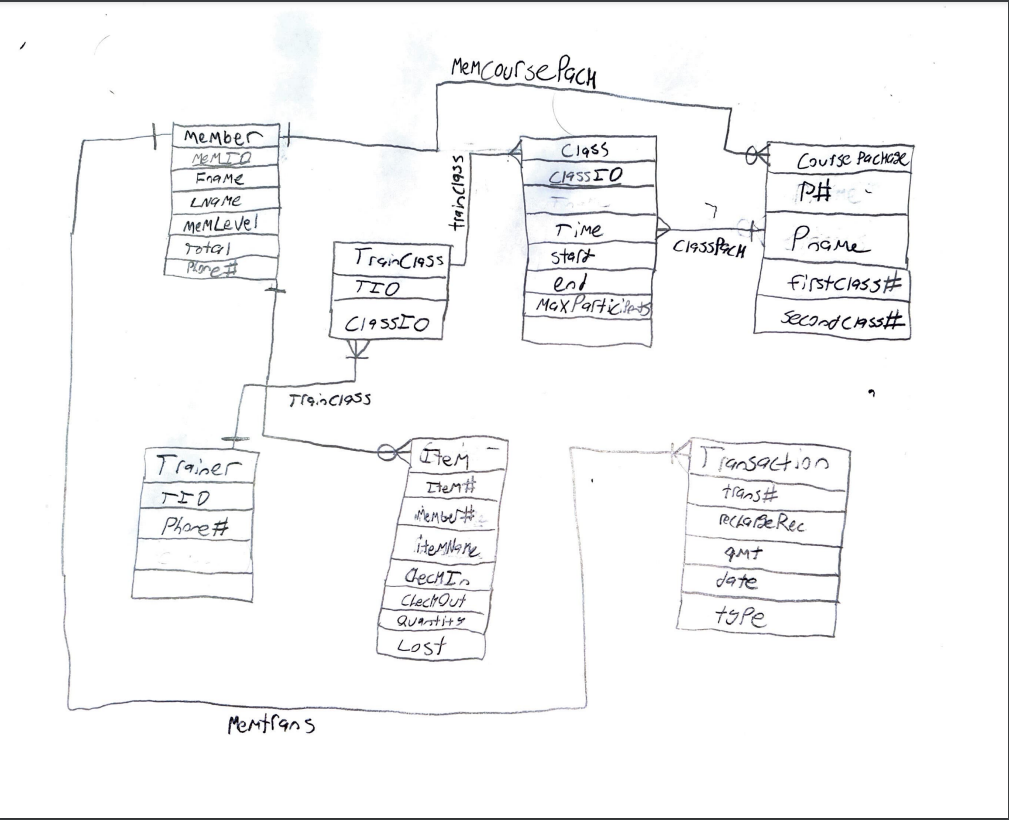 MemCoursePack
Member
MemID
Fname
Lname
MemLevel
Total
Phone#
trainclass
Class
ClassID
Time
start
end
MaxParticipants
ClassPack
Course Package
P#
Pname
firstclass#
secondclass#
TrainClass
TID
ClassID
TrainClass
Trainer
TID
Phone#
Item
Item#
Member#
itemName
CheckIn
CheckOut
Quantity
Lost
Transaction
trans#
rechargeRec
amt
date
type
Memtrans